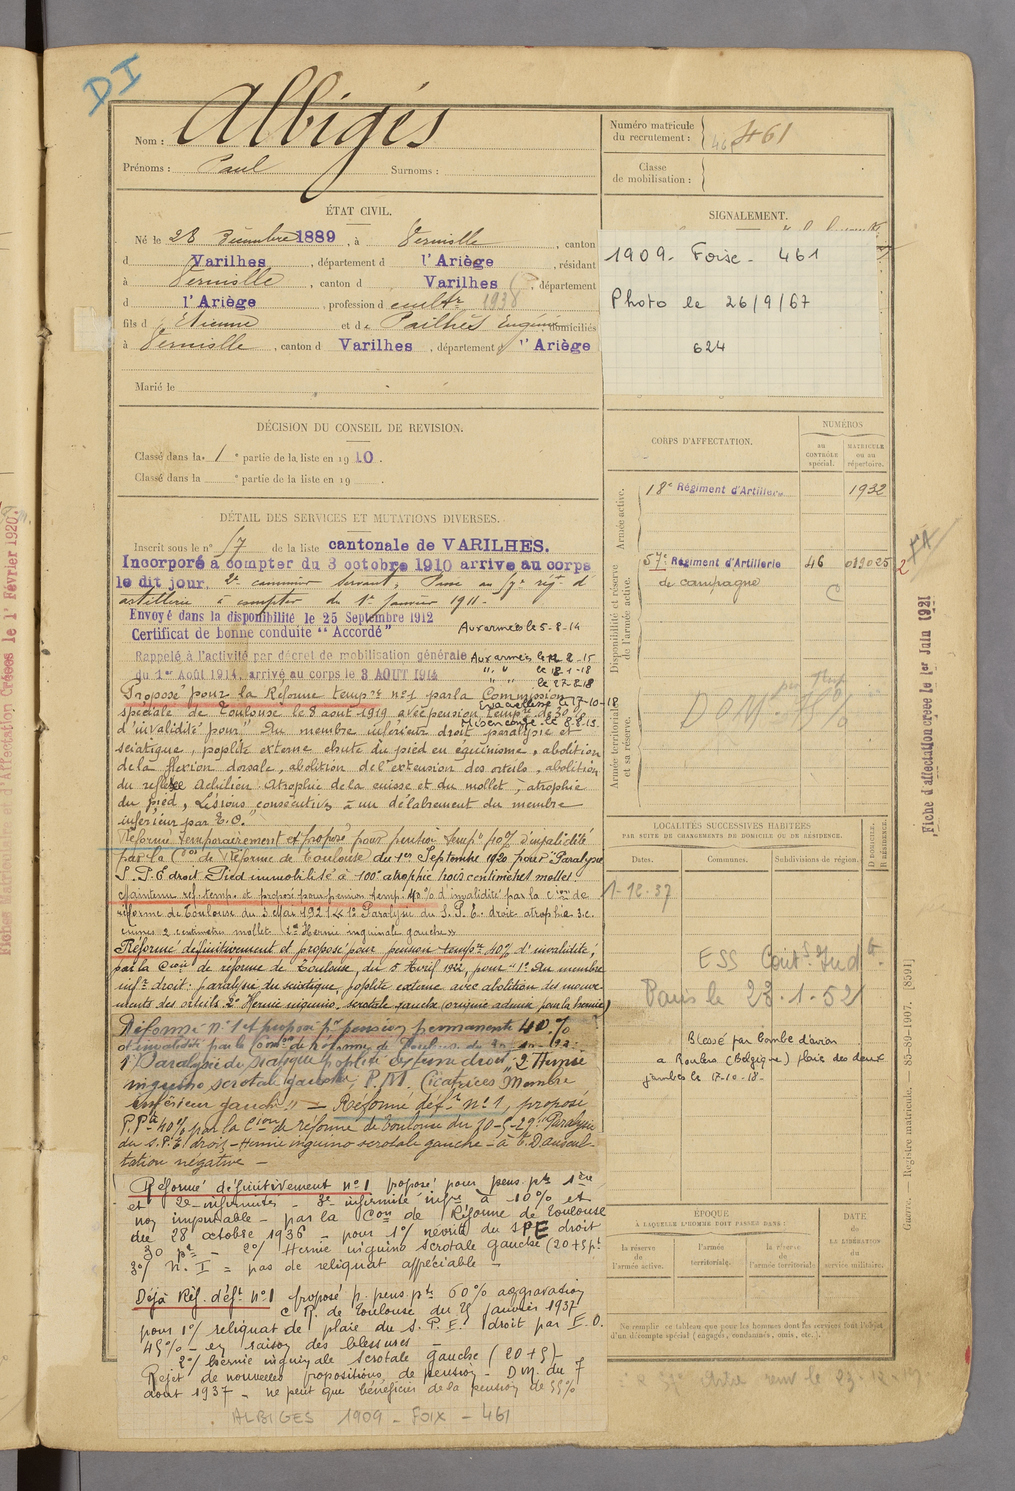 DI
Nom : Albigès
Prénoms : Paul Surnoms :
Numéro matricule du recrutement : 461
Classe de mobilisation :
ÉTAT CIVIL.
Né le 28 Décembre 1889, à Verniolle, canton
d Varilhes, département d l'Ariège, résidant
à Verniolle, canton d Varilhes, département
d l'Ariège, profession d cultr 1938
fils d Etienne et de Pailhès Eugénie, domiciliés
à Verniolle, canton d Varilhes, département d l'Ariège
Marié le
SIGNALEMENT.
1909 - Foix - 461
Photo le 26/9/67
624
DÉCISION DU CONSEIL DE REVISION.
Classé dans la 1e partie de la liste en 1910.
Classé dans la e partie de la liste en 19 .
DÉTAIL DES SERVICES ET MUTATIONS DIVERSES.
Inscrit sous le n° 57 de la liste cantonale de VARILHES.
Incorporé à compter du 3 octobre 1910 arrive au corps
le dit jour, 2e canonnier servant, Passé au 57e rég. d'
artillerie à compter du 1er Janvier 1911.
Envoyé dans la disponibilité le 25 Septembre 1912
Certificat de bonne conduite "Accordé"
Aux armées le 5-8-14
Rappelé à l'activité par décret de mobilisation générale
du 1er Août 1914, arrivé au corps le 3 AOUT 1914
Aux armées le 12-2-15
" " le 18-1-18
" " le 27-8-18
Evacué blessé le 17-10-18
Mis en congé le 8-8-19
Proposé pour la Réforme tempre n°1 par la Commission
spéciale de Toulouse le 8 aout 1919 avec pension tempre de 30%
d'invalidité pour "Du membre inférieur droit paralysie et
sciatique, poplité externe chute du pied en équinisme, abolition
de la flexion dorsale, abolition de l'extension des orteils, abolition
du reflexe Achiléen : Atrophie de la cuisse et du mollet, atrophie
du pied, Lésions consécutives à un délabrement du membre
inférieur par E.O."
Réformé temporairement et proposé pour pension temp. 40% d'invalidité
par la Con de Réforme de Toulouse du 1er Septembre 1920 pour Paralysie
S.P.E droit Pied immobilisé à 100° atrophie trois centimètres mollet.
Maintenu réf. temp. et proposé pour pension temp. 40% d'invalidité par la Cion de
réforme de Toulouse du 3 Mai 1921 1° Paralysie du S.P.E. droit atrophie 3 c.
cuisse 2 centimètres mollet 2° Hernie inguinale gauche »
Réformé définitivement et proposé pour pension tempre 40% d'invalidité,
par la Cion de réforme de Toulouse, du 5 Avril 1922, pour "1° Du membre
infr droit : paralysie du sciatique, poplité externe avec abolition des mouve-
ments des orteils. 2° Hernie inguino-scrotale gauche (origine admise pour la hernie)
Réformé n°1 et proposé pr pension permanente 40%
1° Paralysie du sciatique poplité externe droit 2° Hernie
inguino scrotale gauche, P.M. Cicatrices Membre
inférieur gauche » — Réformé déft n°1, proposé
P.Pte 40% par la Cion de réforme de Toulouse du 30-5-29. Paralysie
du S.P.E. droit - Hernie inguino scrotale gauche - à E. D auscul-
tation négative —
Réformé définitivement n°1 proposé pour pens. pte 1ère
et 2e infirmités - 3e infirmité infre à 10% et
non imputable - par la Con de Réforme de Toulouse
du 28 octobre 1936 - pour 1°/ névrite du SPE droit
30 % - 2°/ Hernie inguino scrotale gauche (20+5)
3°/ N. I = pas de reliquat appréciable -
Déjà Réf. déft n°1 proposé p. pens. pte 60% aggravation
C.R. de Toulouse du 25 janvier 1937
pour 1°/ reliquat de plaie du S.P.E. droit par E.O.
45% - en raison des blessures -
2°/ hernie inguinale scrotale gauche (20+5) -
Rejet de nouvelles propositions de pension - D.M. du 7
août 1937 - ne peut que bénéficier de la pension de 55%
ALBIGES 1909 - FOIX - 461
CORPS D'AFFECTATION.
NUMÉROS
au CONTRÔLE spécial.
MATRICULE ou au répertoire.
Armée active.
18e Régiment d'Artillerie 1932
Disponibilité et réserve de l'armée active.
57e Régiment d'Artillerie 46 019025
de campagne
C
Armée territoriale et sa réserve.
LOCALITÉS SUCCESSIVES HABITÉES
PAR SUITE DE CHANGEMENTS DE DOMICILE OU DE RÉSIDENCE.
Dates. Communes. Subdivisions de région.
D DOMICILE. R RÉSIDENCE.
1-12-37
Paris le 23-1-52
Blessé par bombe d'avion
à Roulers (Belgique) plaie des deux
jambes le 17-10-18-
ÉPOQUE
À LAQUELLE L'HOMME DOIT PASSER DANS :
la réserve de l'armée active.
l'armée territoriale.
la réserve de l'armée territoriale
DATE de LA LIBÉRATION du service militaire.
Ne remplir ce tableau que pour les hommes dont les services font l'objet
d'un décompte spécial (engagés, condamnés, omis, etc.).
Guerre. — Registre matricule. — 85-89-1907. [8591]
Fiche d'affectation créée le 1er Juin 1921
Fiches Matriculaire et d'Affectation Créées le 1er Février 1920.